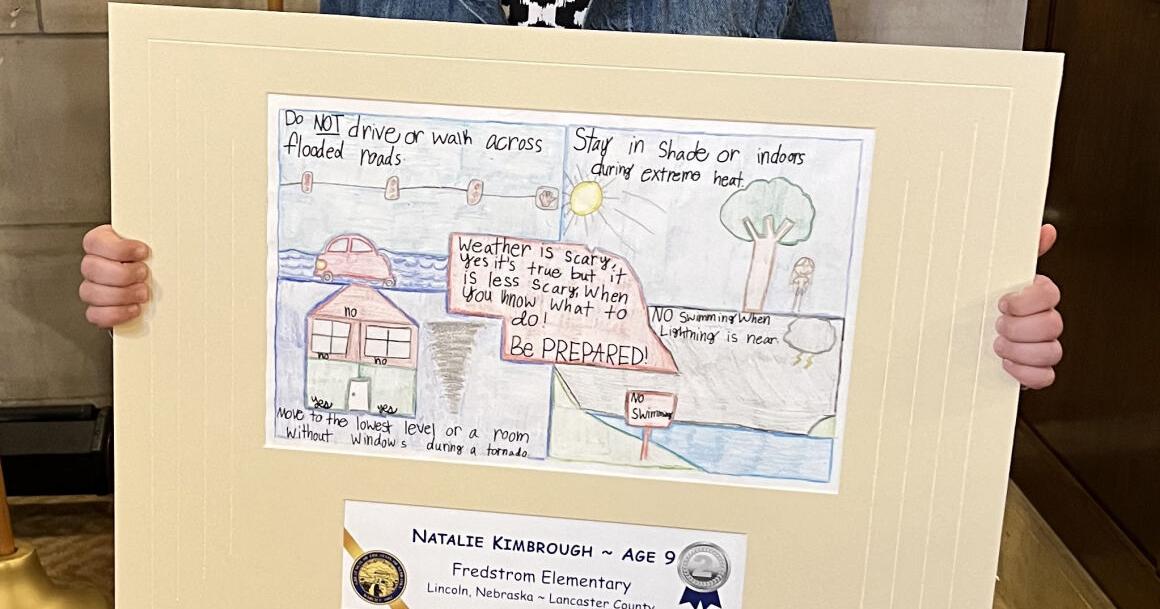 Do NOT drive or walk across
flooded roads.
Stay in Shade or indoors
during extreme heat.
Weather is scary,
yes it's true but it
is less scary, When
You know What to
do!
Be PREPARED!
NO Swimming When
Lightning is near.
no
no
no
yes
yes
Move to the lowest level or a room
Without Windows during a tornado
NO
Swimming
NATALIE KIMBROUGH ~ AGE 9
2
Fredstrom Elementary
Lincoln, Nebraska ~ Lancaster County